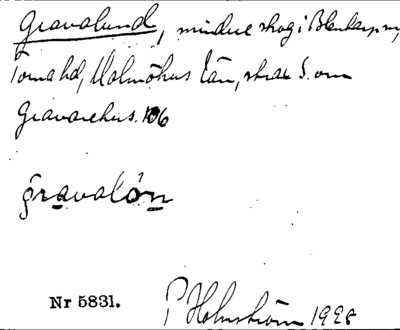 Gravalund, mindre skog i Blentarps sn,
Torna hd, Malmöhus län, strax S. om
Gravarehus. 106
gravalón
Nr 5831.
P Holmström 1928